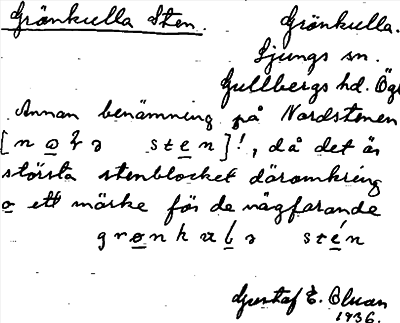 Grönkulla Sten. Grönkulla.
Ljungs sn.
Gullbergs hd. Ög
Annan benämning på Nordstenen
[n o sten]!, då det är
största stenblocket däromkring
o ett märke för de vägfarande
sten
Gustaf E. Olsson
1936.